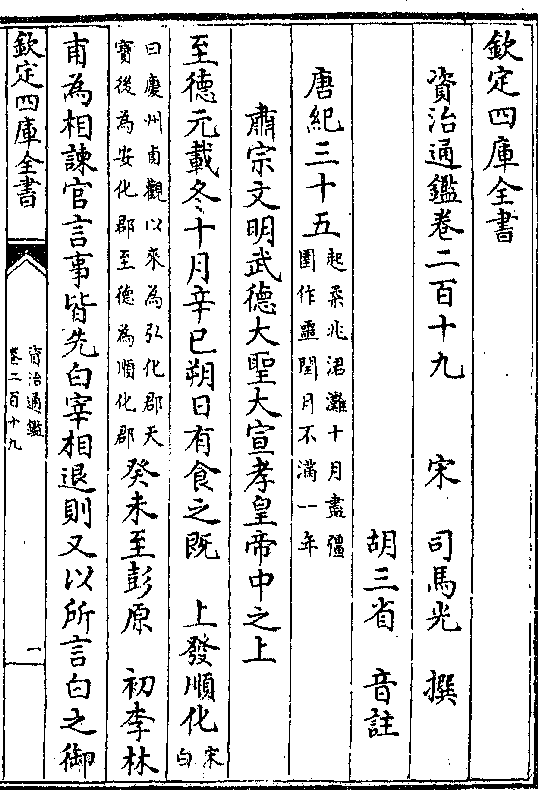 欽定四庫全書
資治通鑑卷二百十九 宋 司馬光 撰
胡三省 音註
唐紀三十五 起柔兆涒灘十月盡彊
圉作噩閏月不滿一年
肅宗文明武德大聖大宣孝皇帝中之上
至德元載冬十月辛巳朔日有食之既 上發順化 宋
白
曰慶州貞觀以來為弘化郡天
寶後為安化郡至德為順化郡
癸未至彭原 初李林
甫為相諫官言事皆先白宰相退則又以所言白之御
欽定四庫全書
資治通鑑
卷二百十九
一